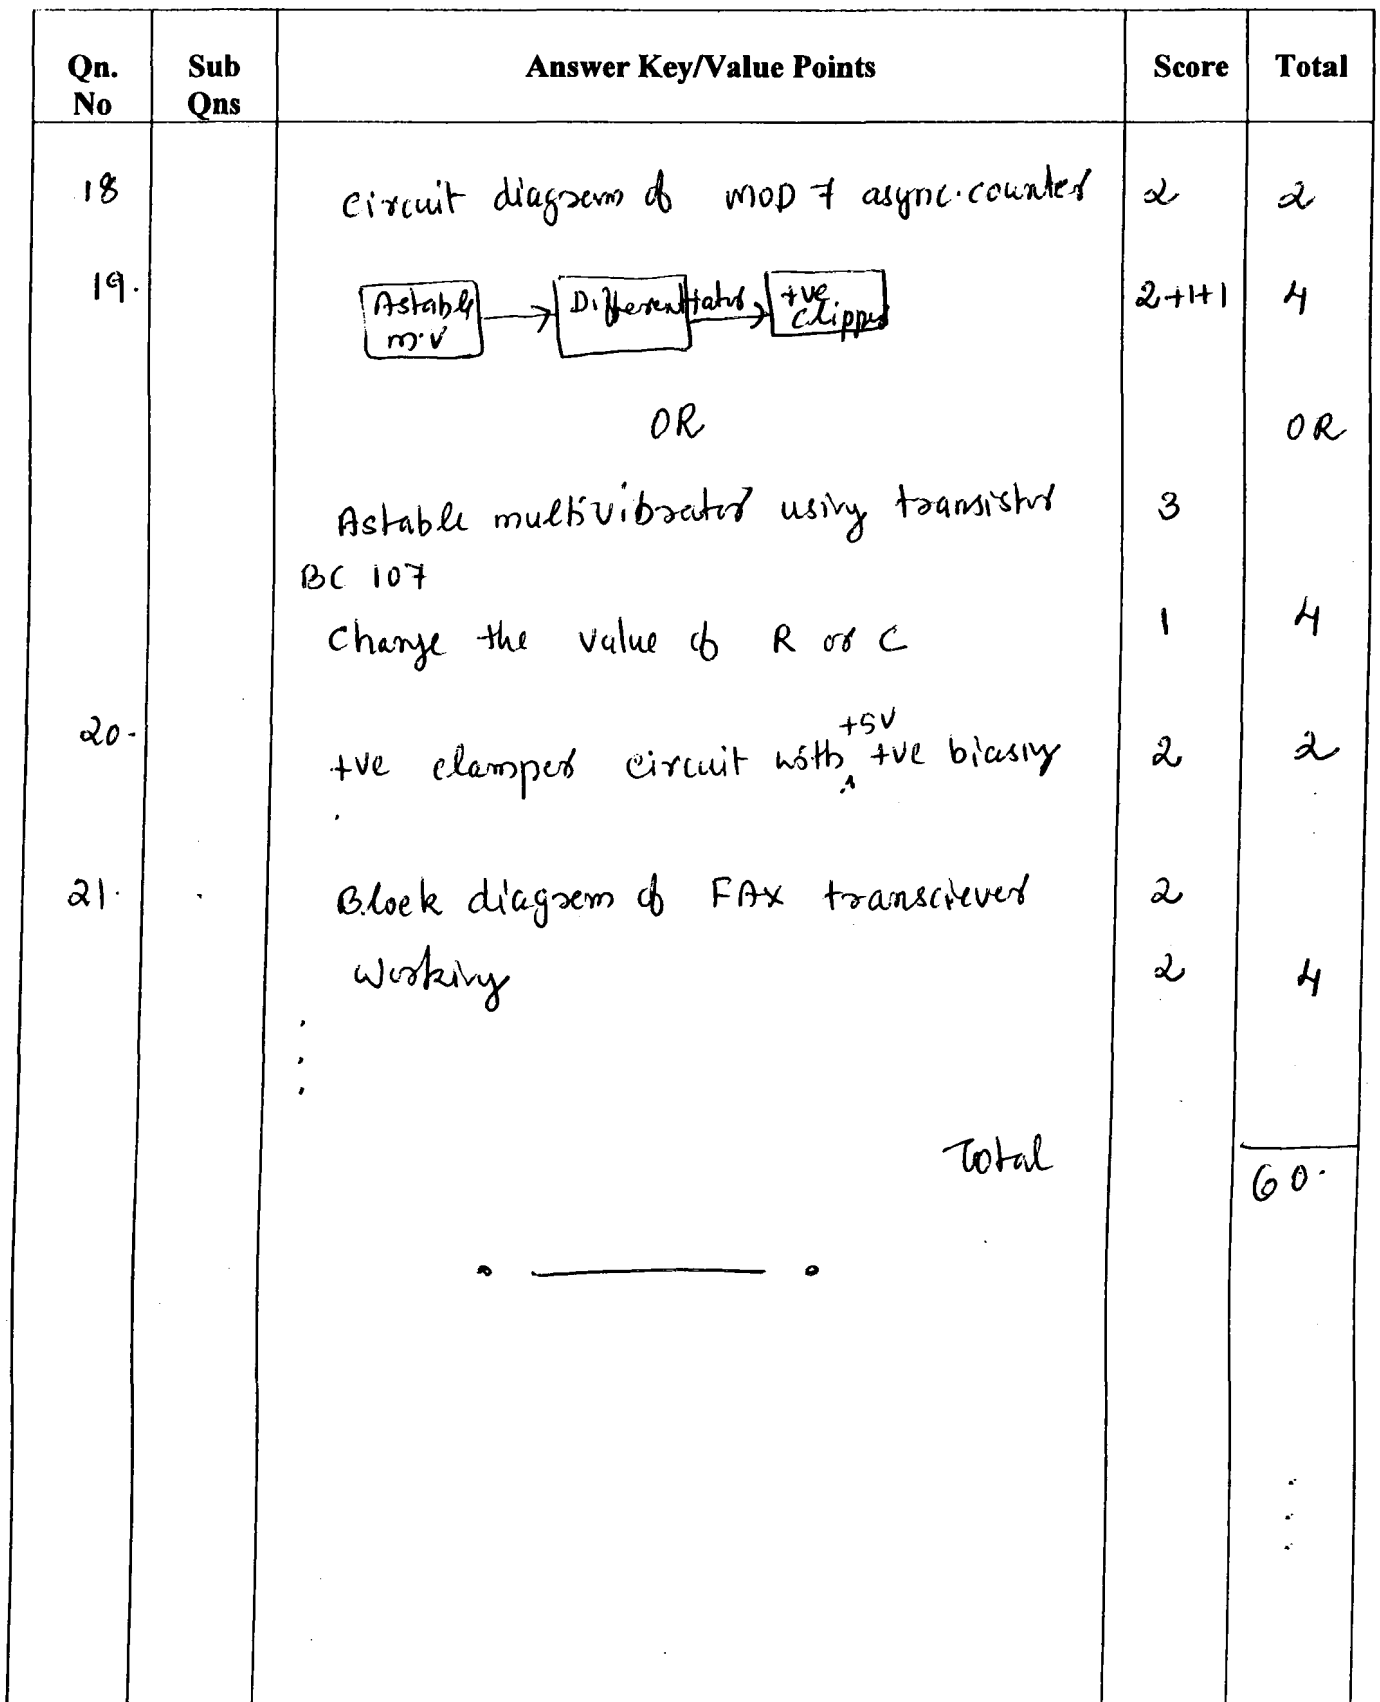 Qn. No Sub Qns Answer Key/Value Points Score Total
18 Circuit diagram of MOD 7 async. counter 2 2
19. Astable m.v Differentiator +ve Clipper 2+1+1 4
OR OR
Astable multivibrator using transistor 3
BC 107
Change the value of R or C 1 4
20. +ve clamper circuit with +5V +ve biasing 2 2
21. Block diagram of FAX transciever 2
Working 2 4
Total 60.